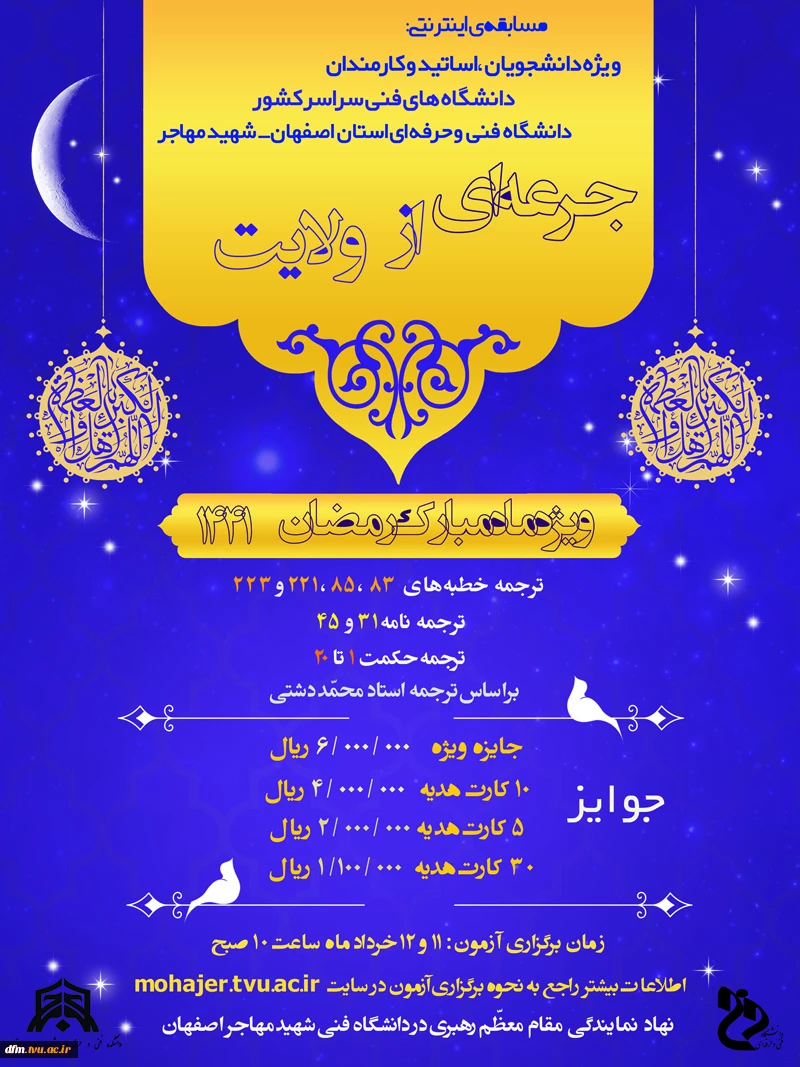 مسابقه‌ی اینترنتی:
ویژه دانشجویان ،اساتید و کارمندان
دانشگاه های فنی سراسر کشور
دانشگاه فنی و حرفه ای استان اصفهان_ شهید مهاجر
جرعه‌ای از ولایت
ویژه ماه مبارک رمضان ۱۴۴۱
ترجمه خطبه های ۸۳ ،۸۵ ،۲۲۱ و ۲۲۳
ترجمه نامه ۳۱ و ۴۵
ترجمه حکمت ۱ تا ۲۰
براساس ترجمه استاد محمّد دشتی
جوایز
جایزه ویژه ۶/۰۰۰/۰۰۰ ریال
۱۰ کارت هدیه ۴/۰۰۰/۰۰۰ ریال
۵ کارت هدیه ۲/۰۰۰/۰۰۰ ریال
۳۰ کارت هدیه ۱/۱۰۰/۰۰۰ ریال
زمان برگزاری آزمون : ۱۱ و ۱۲ خرداد ماه ساعت ۱۰ صبح
اطلاعات بیشتر راجع به نحوه برگزاری آزمون در سایت mohajer.tvu.ac.ir
نهاد نمایندگی مقام معظّم رهبری در دانشگاه فنی شهید مهاجر اصفهان
dfm.tvu.ac.ir